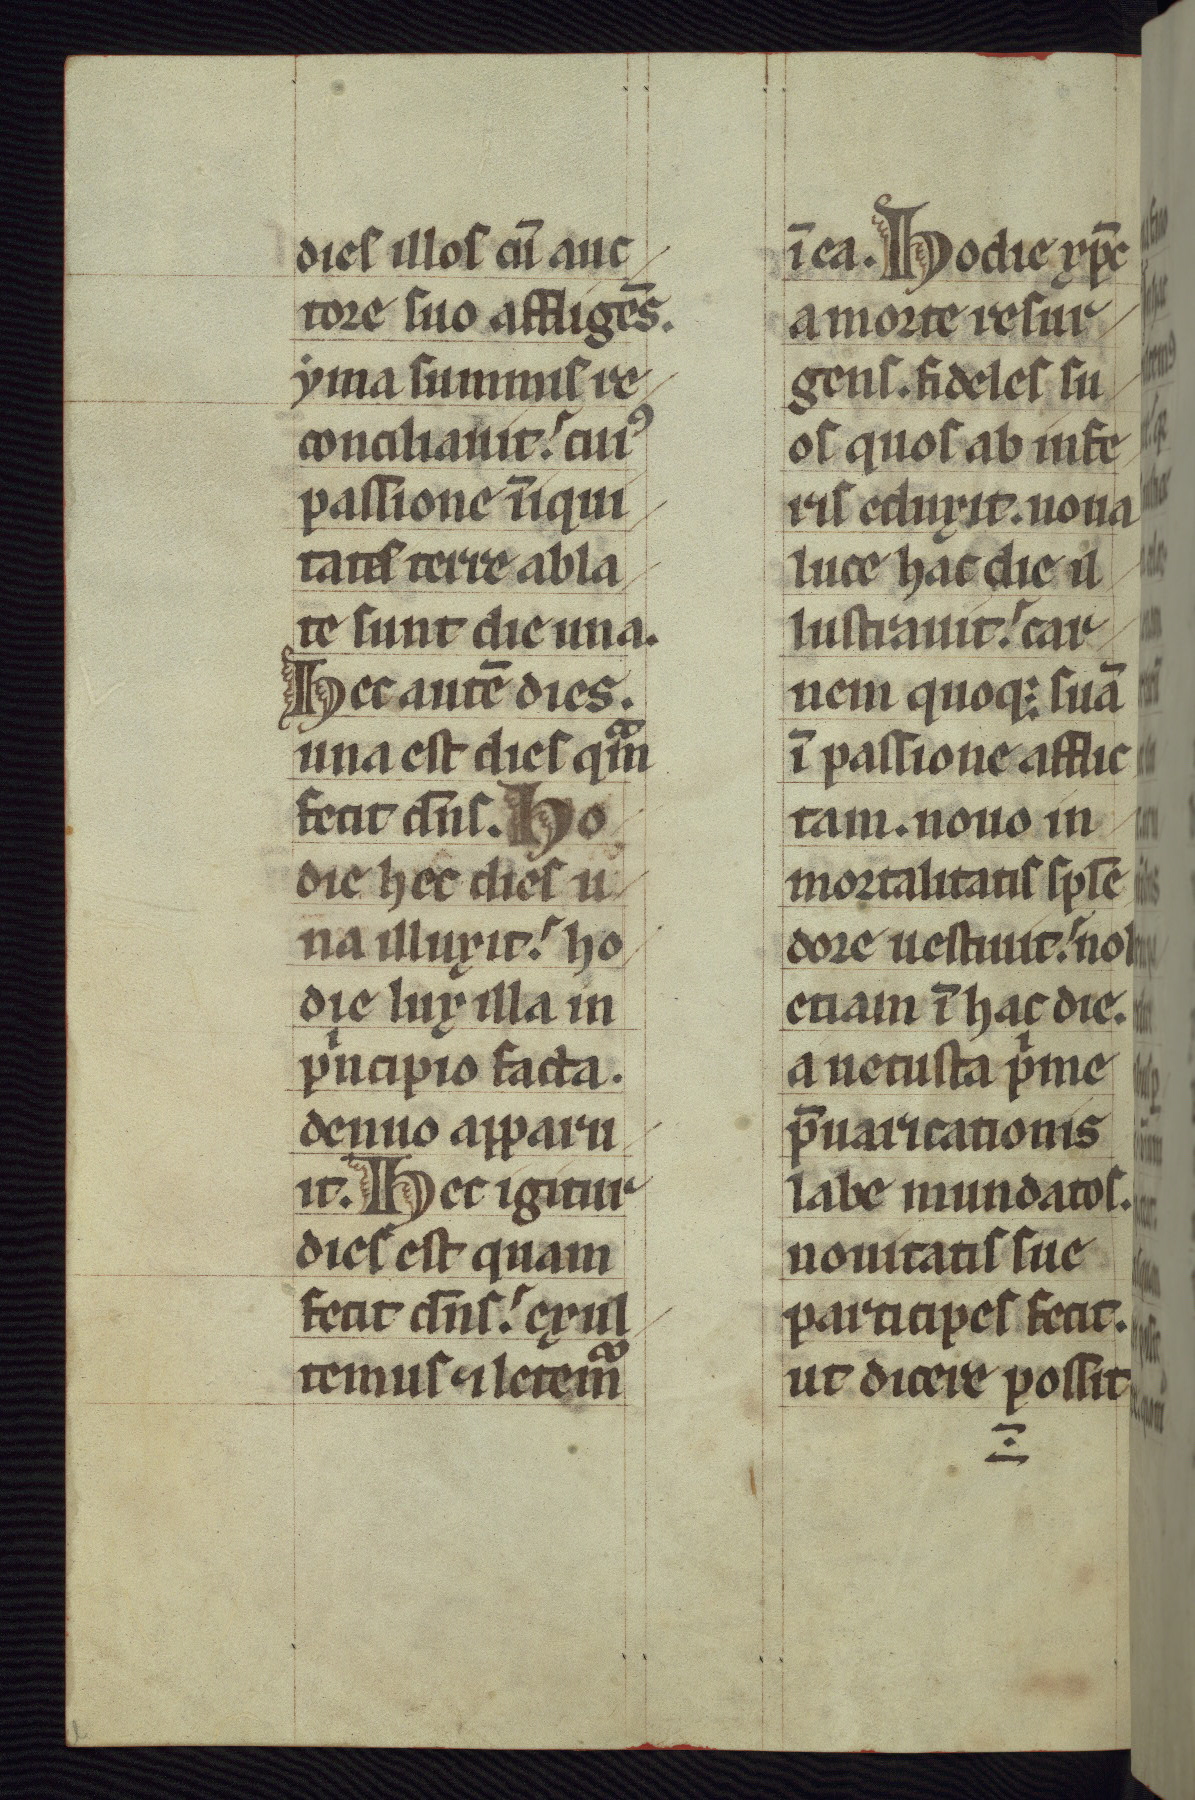 dies illos cū auc
tore suo affligēs.
ẏma summis re
conciliauit: cuiꝰ
passione īiqui
tates terre abla
te sunt die una.
Hec autē dies.
una est dies qͣm̄
fecit dn̄s. Ho
die hec dies u
na illuxit: ho
die lux illa in
pͥncipio facta.
denuo apparu
it. Hec igitur
dies est quam
fecit dn̄s: exul
temus & letem̄
ī ea. Hodie xp̄c
a morte resur
gens. fideles su
os quos ab infe
ris eduxit. noua
luce hac die il
lustrauit: car
nem quoq; suā
ī passione afflic
tam. nouo in
mortalitatis splē
dore uestiuit: nos
etiam ī hac die.
a uetusta pͥme
p̄uaricationis
labe mundatos.
nouitatis sue
participes fecit.
ut dicere possit